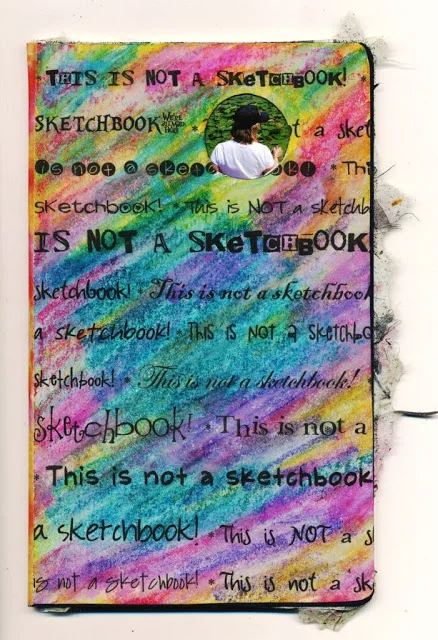 * THIS IS NOT A SKETCHBOOK! *
SKETCHBOOK t a sket
is not a sket ok! * Thi
sketchbook! * This is NOT a sketchb
IS NOT A SKETCHBOOK
sketchbook! * This is not a sketchbook
a sketchbook! * THIS IS NOT A SKETCHBO
sketchbook! * This is not a sketchbook! *
sketchbook! * This is not a
* This is not a sketchbook
a sketchbook! * This is NOT a s
is not a sketchbook! * This is not a sk